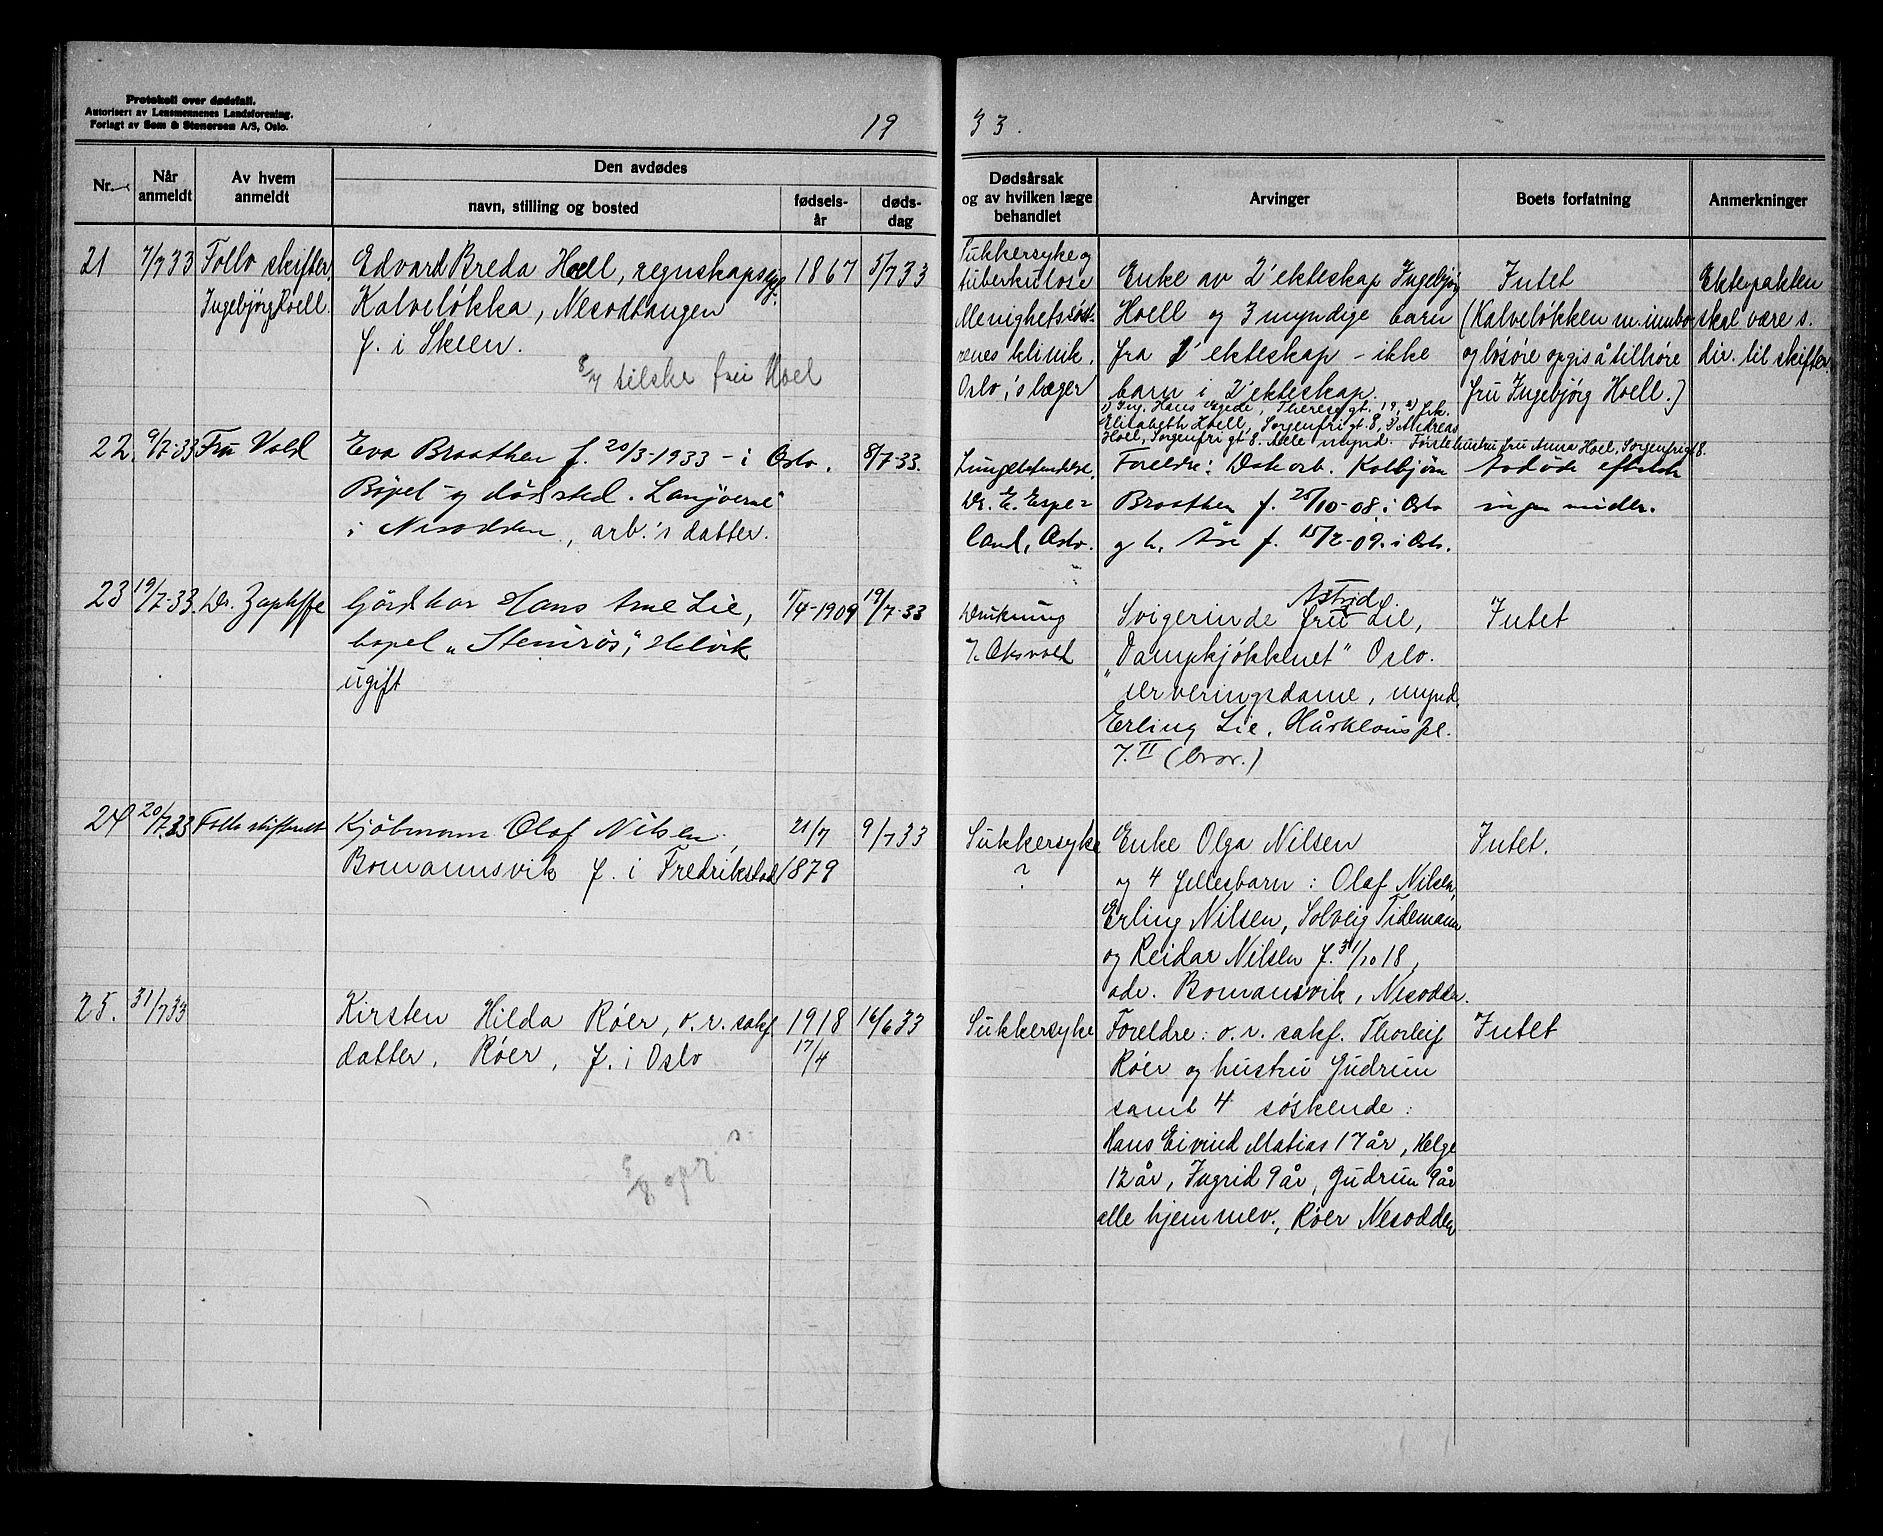 Protokoll over dødsfall.
Autorisert av Lensmennenes Landsforening.
Forlagt av Sem & Stenersen A/S, Oslo.
19
33.
Nr.
Når anmeldt
Av hvem anmeldt
Den avdødes
navn, stilling og bosted
fødselsår
dødsdag
Dødsårsak og av hvilken læge behandlet
Arvinger
Boets forfatning
Anmerkninger
21
7/7 33
Follo skifter,
Ingebjørg Hoell.
Edvard Breda Hoell, regnskaps
Kalveløkka, Nesodtangen
f. i Skien.
8/7 tilske frui Hoel
1867
5/7 33
Sukkersyke og
tuberkulose
Menighetssøst-
renes klinik,
Oslo, 's læger
Enke av 2' ekteskap Ingebjørg
Hoell og 3 myndige barn
fra 1' ekteskap - ikke
barn i 2' ekteskap.
1) Ing. Hans Egede, Theresegt. 19, 2) frk.
Elisabeth Hoell, Sorgenfrigt 8, 3) Andreas
Hoel, Sorgenfrigt 8. Alle mynd. Førstehustru fru Anna Hoel, Sorgenfrigt 8.
Intet
(Kalveløkken m. innbo
og løsøre opgis å tilhøre
fru Ingebjørg Hoell.)
Ektepakten
skal være s.
div. til skifter.
22.
9/7-33
Fru Vold
Eva Braathen f. 20/3-1933 - i Oslo.
Bopel og dødssted. Langøerne
i Nesodden, arb.'s datter.
8/7-33.
Lungebetendelse.
Dr. E. Espe=
land, Oslo.
Foreldre: Dokarb. Kolbjørn
Braathen f. 25/10-08 i Oslo
og h. Åse f. 15/2-09. i Oslo.
Avdøde efterlot
ingen midler.
23
19/7-33.
Dr. Zapffe
Gårdkar Hans Arne Lie,
bopel „Stenrøs", Helvik
ugift
1/4-1909
19/7-33
Drukning
J. Oksvold
Svigerinde fru Astrid Lie,
"Dampkjøkkenet" Oslo.
serveringsdame, mynd.
Erling Lie, Hårkløuspl.
7.II (bror.)
Intet
24
20/7.33
Follo skifterett
Kjøbmann Olaf Nilsen,
Bomannsvik f. i Fredrikstad
21/7
1879
9/7 33
Sukkersyke
?
Enke Olga Nilsen
og 4 fellesbarn: Olaf Nilsen,
Erling Nilsen, Solveig Tidemann
og Reidar Nilsen f. 31/10 18,
adr. Bomansvik, Nesodden.
Intet.
25.
31/7 33
Kirsten Hilda Røer, o.r. sakf.
datter, Røer, f. i Oslo
1918
17/4
16/6 33
Sukkersyke
Foreldre: o.r. sakf. Thorleif
Røer og hustru Gudrun
samt 4 søskende:
Hans Eivind Matias 17 år, Helge
12 år, Ingrid 9 år, Gudrun 9 år
alle hjemmev., Røer Nesodden
Intet